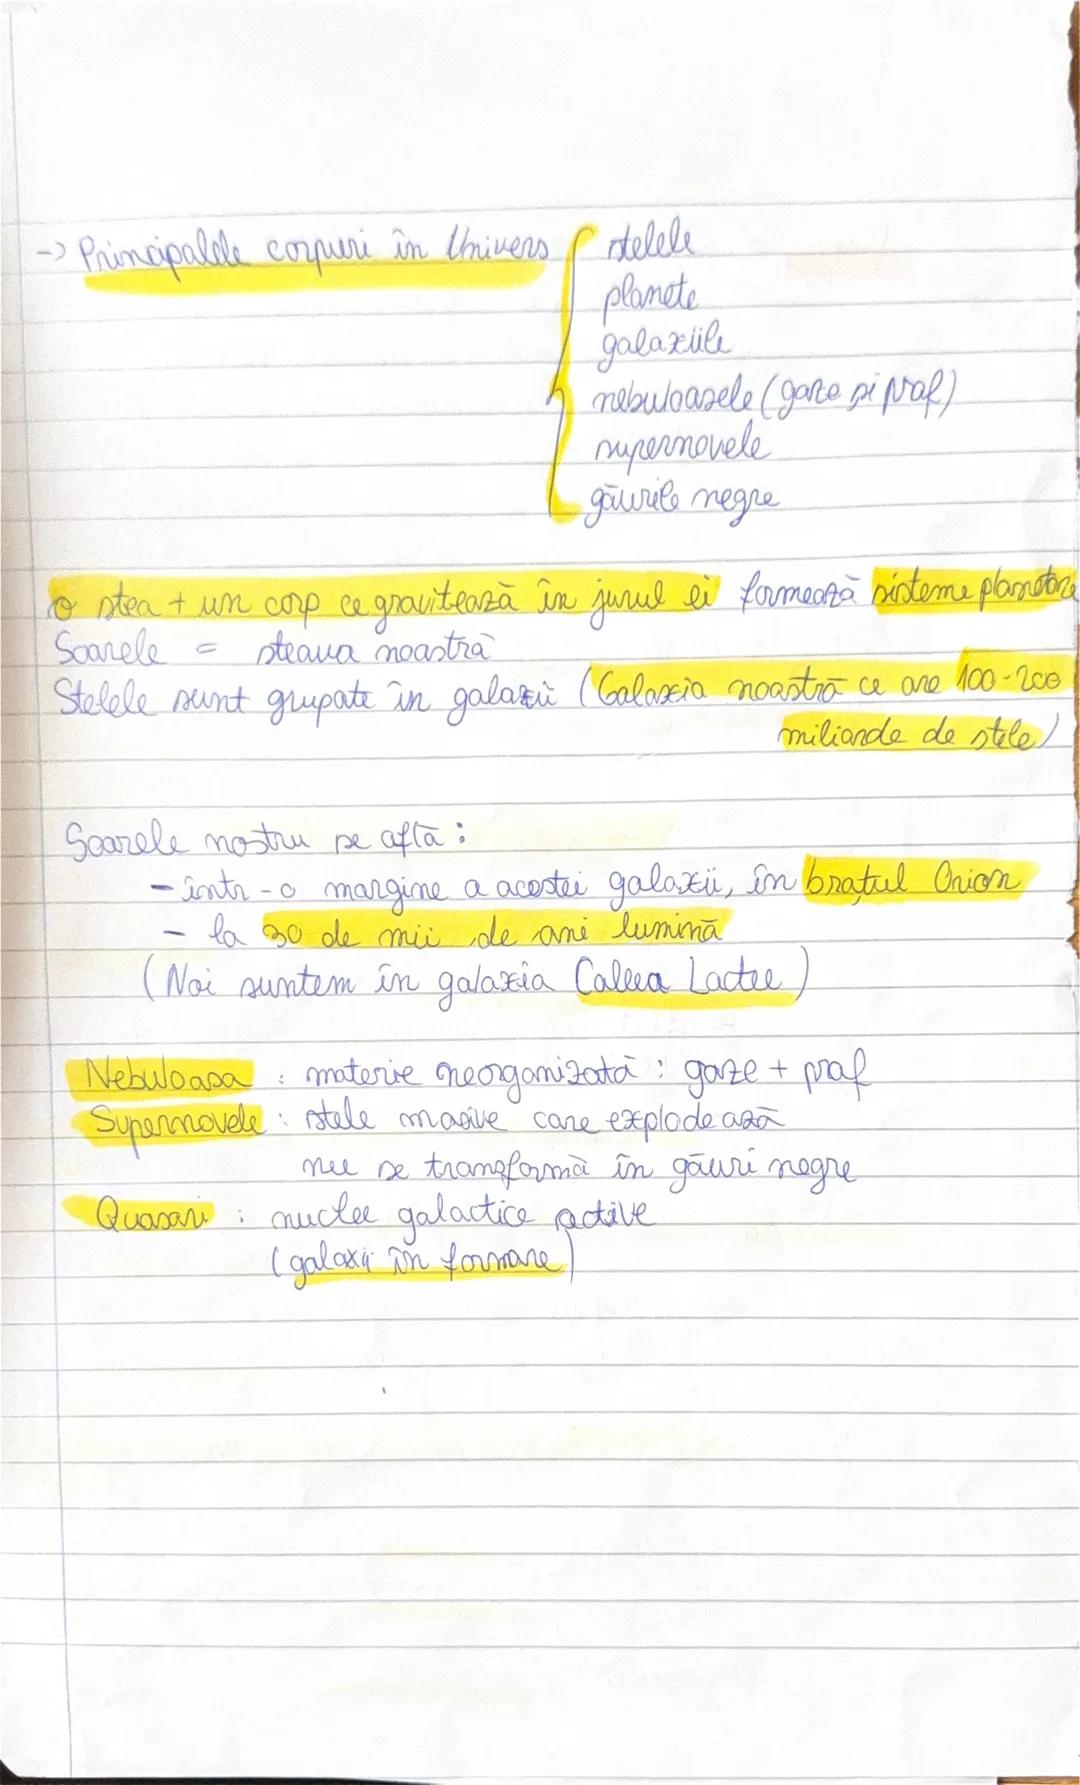 -> Principalele corpuri în Univers { stelele
planete
galaxiile
nebuloasele (gaze și praf)
supernovele
găurile negre
o stea + un corp ce gravitează în jurul ei formează sisteme planetare
Soarele = steaua noastră
Stelele sunt grupate în galaxii (Galaxia noastră ce are 100-200
miliarde de stele)
Soarele nostru se află :
- într-o margine a acestei galaxii, în brațul Orion
- la 30 de mii de ani lumină
(Noi suntem în galaxia Calea Lactee)
Nebuloasa : materie neorganizată : gaze + praf
Supernovele : stele masive care explodează
nu se transformă în găuri negre
Quasari : nuclee galactice active
(galaxii în formare)